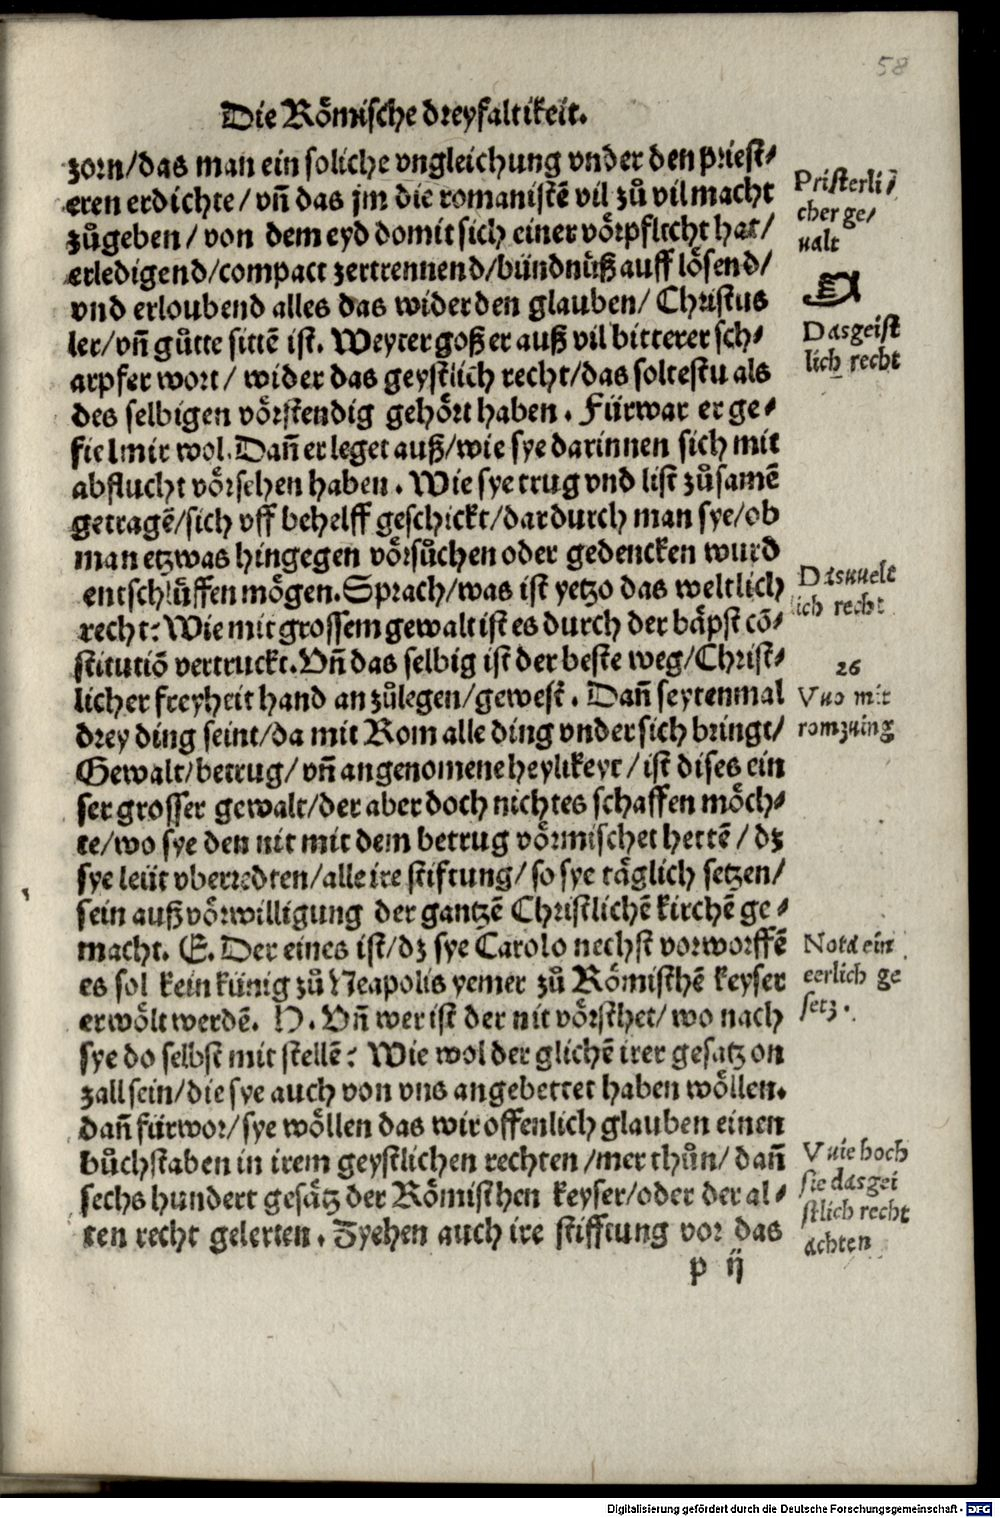 58
Die Rômische dreyfaltikeit.
zorn/das man ein soliche vngleichung vnder den priest⸗
eren erdichte/ vñ das jm die romanistẽ vil zů vil macht
zůgeben/ von dem eyd domit sich einer vôrpflicht hat/
erledigend/compact zertrennend/bündnüß auff lôsend/
vnd erloubend alles das wider den glauben/ Christus
ler/vñ gůtte sittẽ ist. Weyter goß er auß vil bitterer sch⸗
arpfer wort/ wider das geystlich recht/das soltestu als
des selbigen vôrstendig gehôrt haben. Fürwar er ge⸗
fiel mir wol. Dañ er leget auß/wie sye darinnen sich mit
abflucht vôrsehen haben. Wie sye trug vnd list zůsamẽ
getragẽ/sich vff behelff geschickt/dardurch man sye/ob
man etzwas hingegen vôrsůchen oder gedencken wurd
entschlüffen môgen. Sprach/was ist yetzo das weltlich
recht: Wie mit grossem gewalt ist es durch der bâpst cõ⸗
stitutiõ vertruckt. Vñ das selbig ist der beste weg/Christ⸗
licher freyheit hand an zůlegen/gewest. Dañ seytenmal
drey ding seint/da mit Rom alle ding vnder sich bringt/
Gewalt/betrug/vñ angenomene heylikeyt/ist dises ein
ser grosser gewalt/der aber doch nichtes schaffen môch⸗
te/wo sye den nit mit dem betrug vôrmischet hettẽ/dz
sye leüt vberredten/alle ire stiftung/so sye tâglich setzen/
sein auß vôrwilligung der gantzẽ Christlichẽ kirchẽ ge⸗
macht. E. Der eines ist/dz sye Carolo nechst vorworffẽ
es sol kein künig zů Neapolis yemer zů Rômisthẽ keyser
erwôlt werdẽ. H. Vñ wer ist der nit vôrsthet/wo nach
sye do selbst mit stellẽ: Wie wol der glichẽ irer gesatz on
zall sein/die sye auch von vns angebettet haben wôllen.
dañ fürwor/sye wôllen das wir offenlich glauben einen
bůchstaben in irem geystlichen rechten/mer thůn/dañ
sechs hundert gesâtz der Rômisthen keyser/oder der al⸗
ten recht gelerten. Zyehen auch ire stifftung vor das
p ij
Pristerli⸗
cher ge/
ualt
Das geist
lich recht
Das uuelt
lich recht
26
Vuo mit
rom zuing
Nota ein
eerlich ge
setz.
Vuie hoch
sie das gei
stlich recht
achten
Digitalisierung gefördert durch die Deutsche Forschungsgemeinschaft - DFG